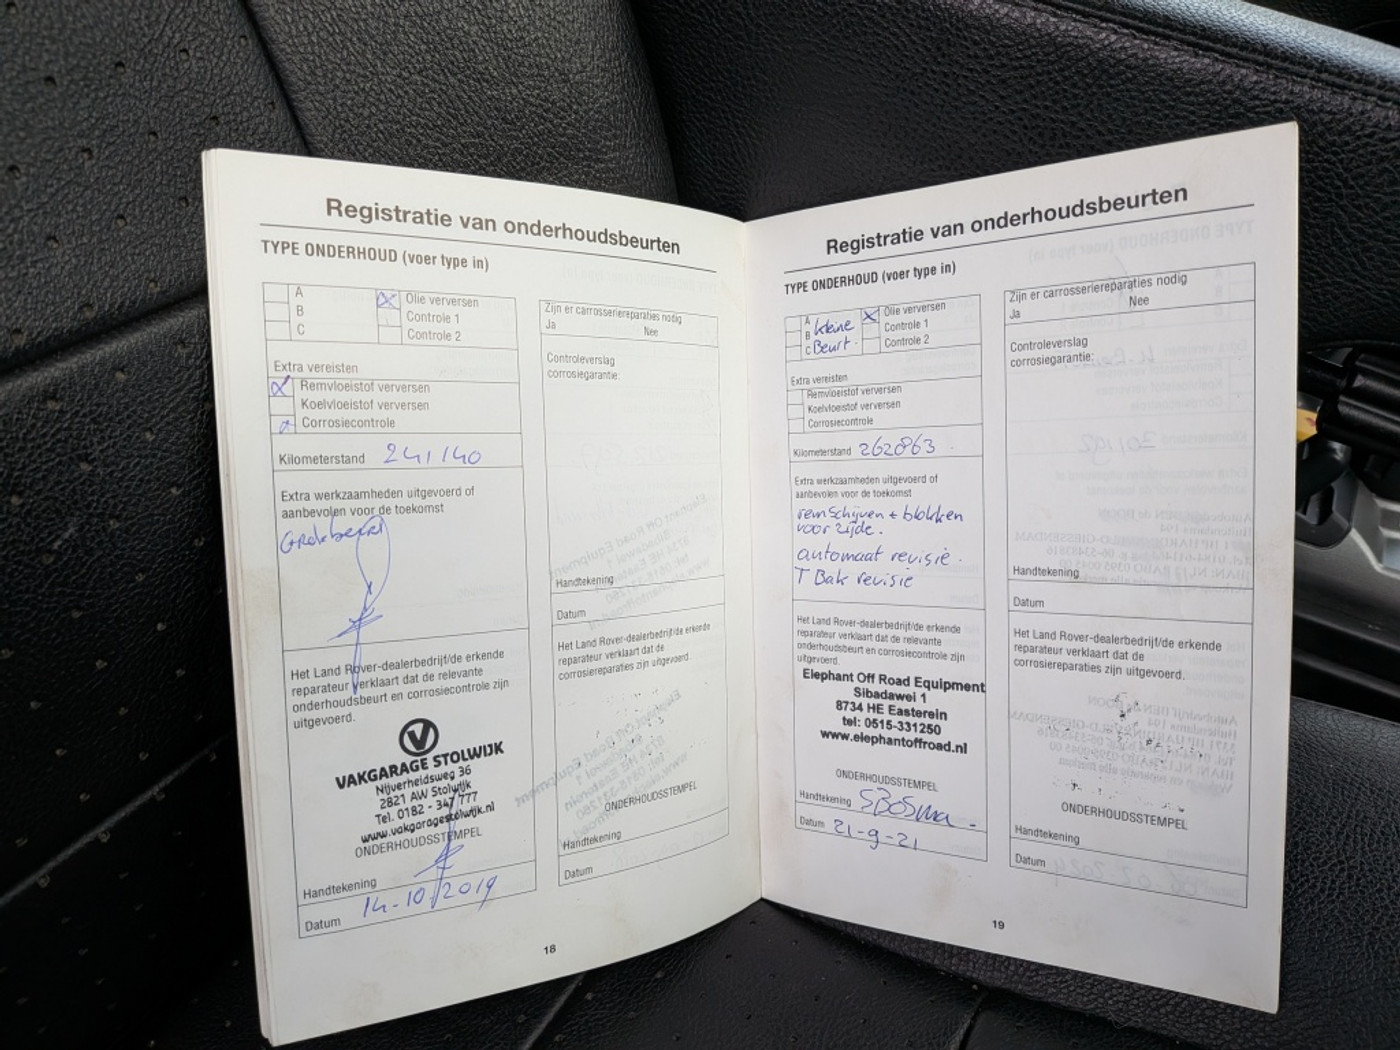 Registratie van onderhoudsbeurten
TYPE ONDERHOUD (voer type in)
A
B
C
Olie verversen
Controle 1
Controle 2
Extra vereisten
Remvloeistof verversen
Koelvloeistof verversen
Corrosiecontrole
Kilometerstand 241140
Extra werkzaamheden uitgevoerd of
aanbevolen voor de toekomst
Het Land Rover-dealerbedrijf/de erkende
reparateur verklaart dat de relevante
onderhoudsbeurt en corrosiecontrole zijn
uitgevoerd.
VAKGARAGE STOLWIJK
Nijverheidsweg 36
2821 AW Stolwijk
Tel. 0182 - 347 777
www.vakgaragestolwijk.nl
ONDERHOUDSSTEMPEL
Handtekening
Datum 14-10-2019
Zijn er carrosseriereparaties nodig
Ja Nee
Controleverslag
corrosiegarantie:
Handtekening
Datum
Het Land Rover-dealerbedrijf/de erkende
reparateur verklaart dat de
corrosiereparaties zijn uitgevoerd.
ONDERHOUDSSTEMPEL
Handtekening
Datum
18
Registratie van onderhoudsbeurten
TYPE ONDERHOUD (voer type in)
A
B
C
kleine
Beurt.
Olie verversen
Controle 1
Controle 2
Extra vereisten
Remvloeistof verversen
Koelvloeistof verversen
Corrosiecontrole
Kilometerstand 262863
Extra werkzaamheden uitgevoerd of
aanbevolen voor de toekomst
remschijven + blokken
voor zijde.
automaat revisie.
T Bak revisie
Het Land Rover-dealerbedrijf/de erkende
reparateur verklaart dat de relevante
onderhoudsbeurt en corrosiecontrole zijn
uitgevoerd.
Elephant Off Road Equipment
Sibadawei 1
8734 HE Easterein
tel: 0515-331250
www.elephantoffroad.nl
ONDERHOUDSSTEMPEL
Handtekening SBosma
Datum 21-9-21
Zijn er carrosseriereparaties nodig
Ja Nee
Controleverslag
corrosiegarantie:
Handtekening
Datum
Het Land Rover-dealerbedrijf/de erkende
reparateur verklaart dat de
corrosiereparaties zijn uitgevoerd.
ONDERHOUDSSTEMPEL
Handtekening
Datum
19